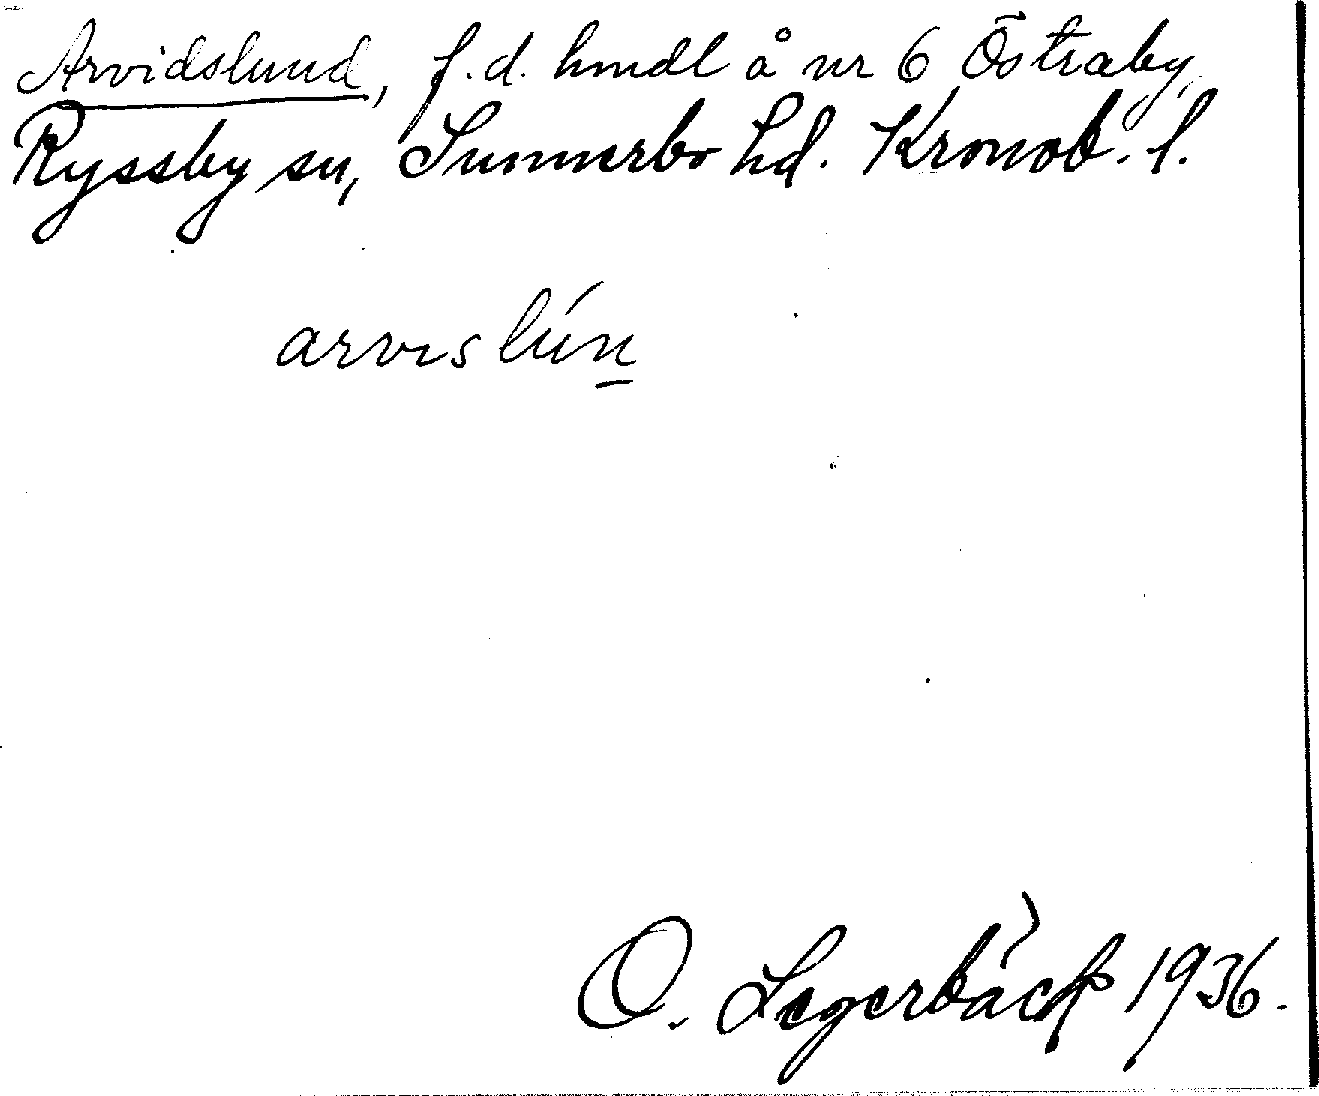 Arvidslund, f.d. hmdl å nr 6 Östraby,
Ryssby sn, Sunnerbo hd. Kronob. l.
arvıslún̲
O. Legerbäck 1936.